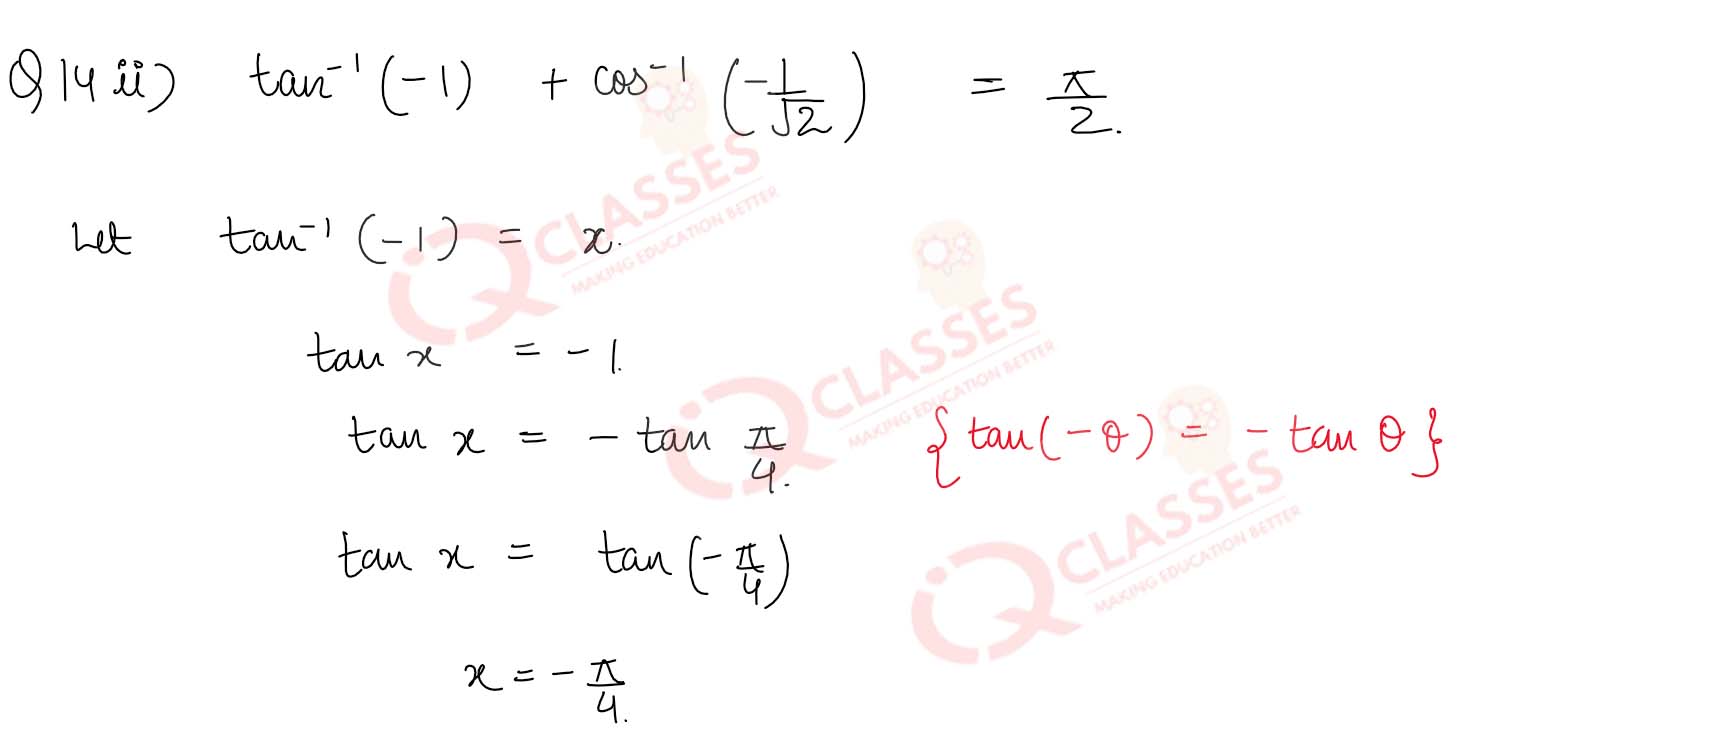 Q 14 ii) tan⁻¹ (-1) + cos⁻¹ (-1/√2) = π/2.
Let tan⁻¹ (-1) = x.
tan x = -1.
tan x = - tan π/4. {tan(-θ) = - tan θ}
tan x = tan (-π/4)
x = - π/4.
iQ CLASSES
MAKING EDUCATION BETTER
iQ CLASSES
MAKING EDUCATION BETTER
iQ CLASSES
MAKING EDUCATION BETTER